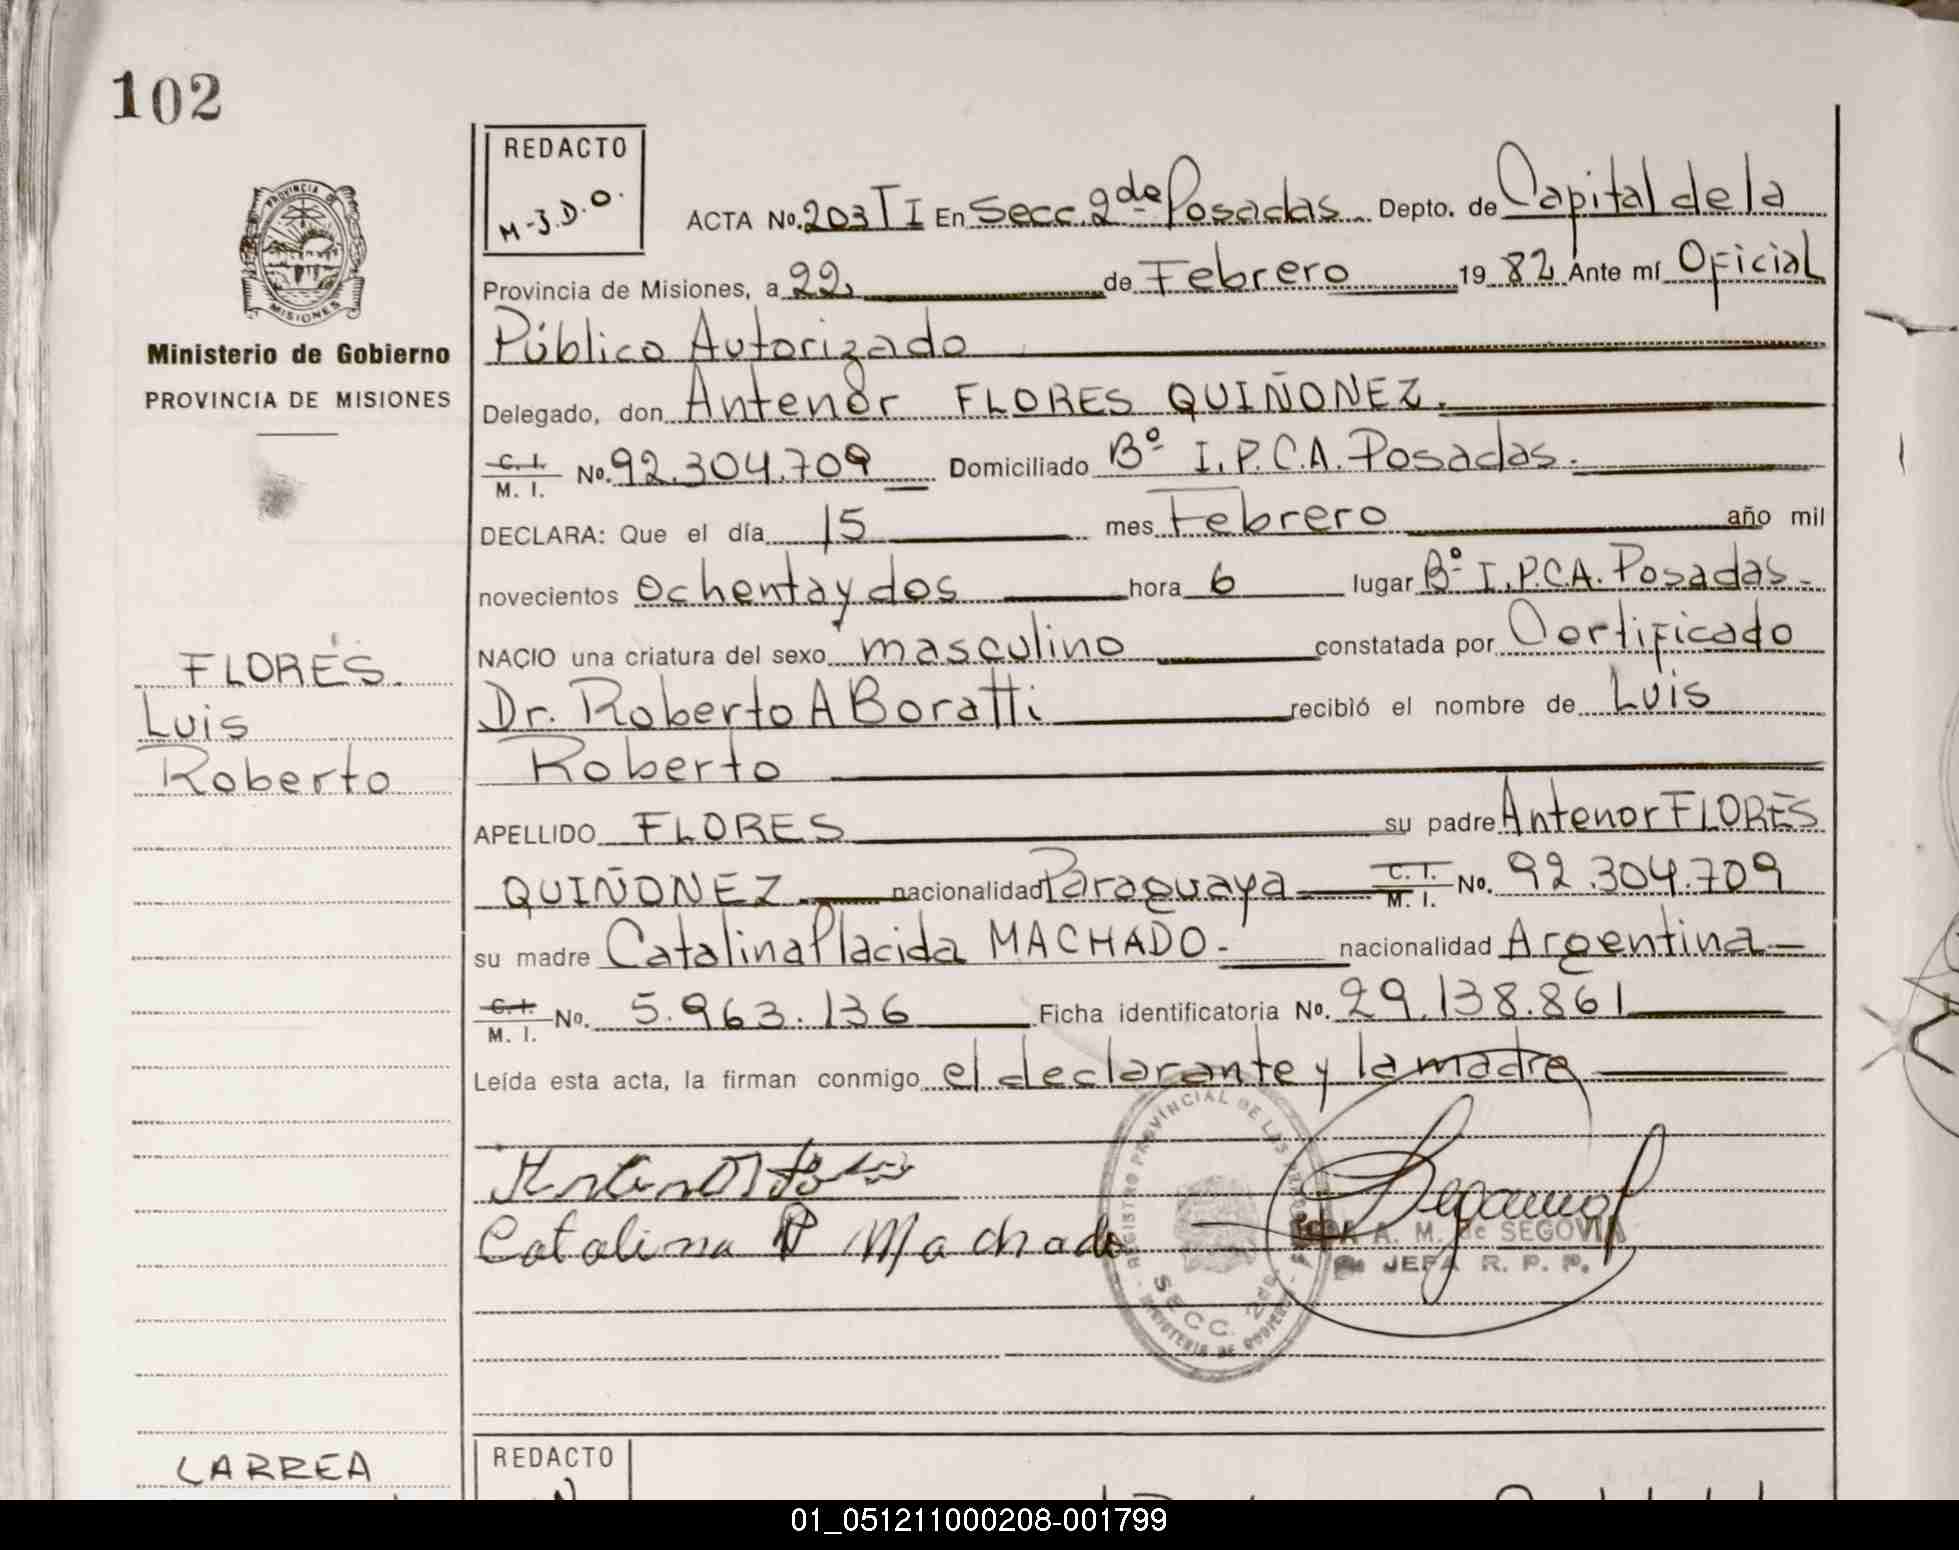 102
REDACTO
M-J.D.O.
PROVINCIA DE
MISIONES
Ministerio de Gobierno
PROVINCIA DE MISIONES
ACTA No. 203 T I En Secc. 2da Posadas Depto. de Capital de la
Provincia de Misiones, a 22, de Febrero 19 82 Ante mí Oficial
Público Autorizado
Delegado, don Antenor FLORES QUIÑONEZ.
C. I.
M. I. No. 92.304.709 Domiciliado Bº I.P.C.A. Posadas.
DECLARA: Que el día 15 mes Febrero año mil
novecientos ochenta y dos hora 6 lugar Bº I.P.C.A. Posadas-
NACIO una criatura del sexo masculino constatada por Certificado
Dr. Roberto A Boratti recibió el nombre de Luis
Roberto
APELLIDO FLORES su padre Antenor FLORES
QUIÑONEZ. nacionalidad Paraguaya C. I.
M. I. No. 92.304.709
su madre Catalina Placida MACHADO- nacionalidad Argentina
C. I.
M. I. No. 5.963.136 Ficha identificatoria No. 29.138.861
Leída esta acta, la firman conmigo el declarante y la madre
FLORES.
Luis
Roberto
Catalina P Machado
REGISTRO PROVINCIAL DE LAS
SECC. 2da
MINISTERIO DE GOBIERNO
A. M. de SEGOVIA
JEFA R. P. P.
LARREA
REDACTO
01_051211000208-001799